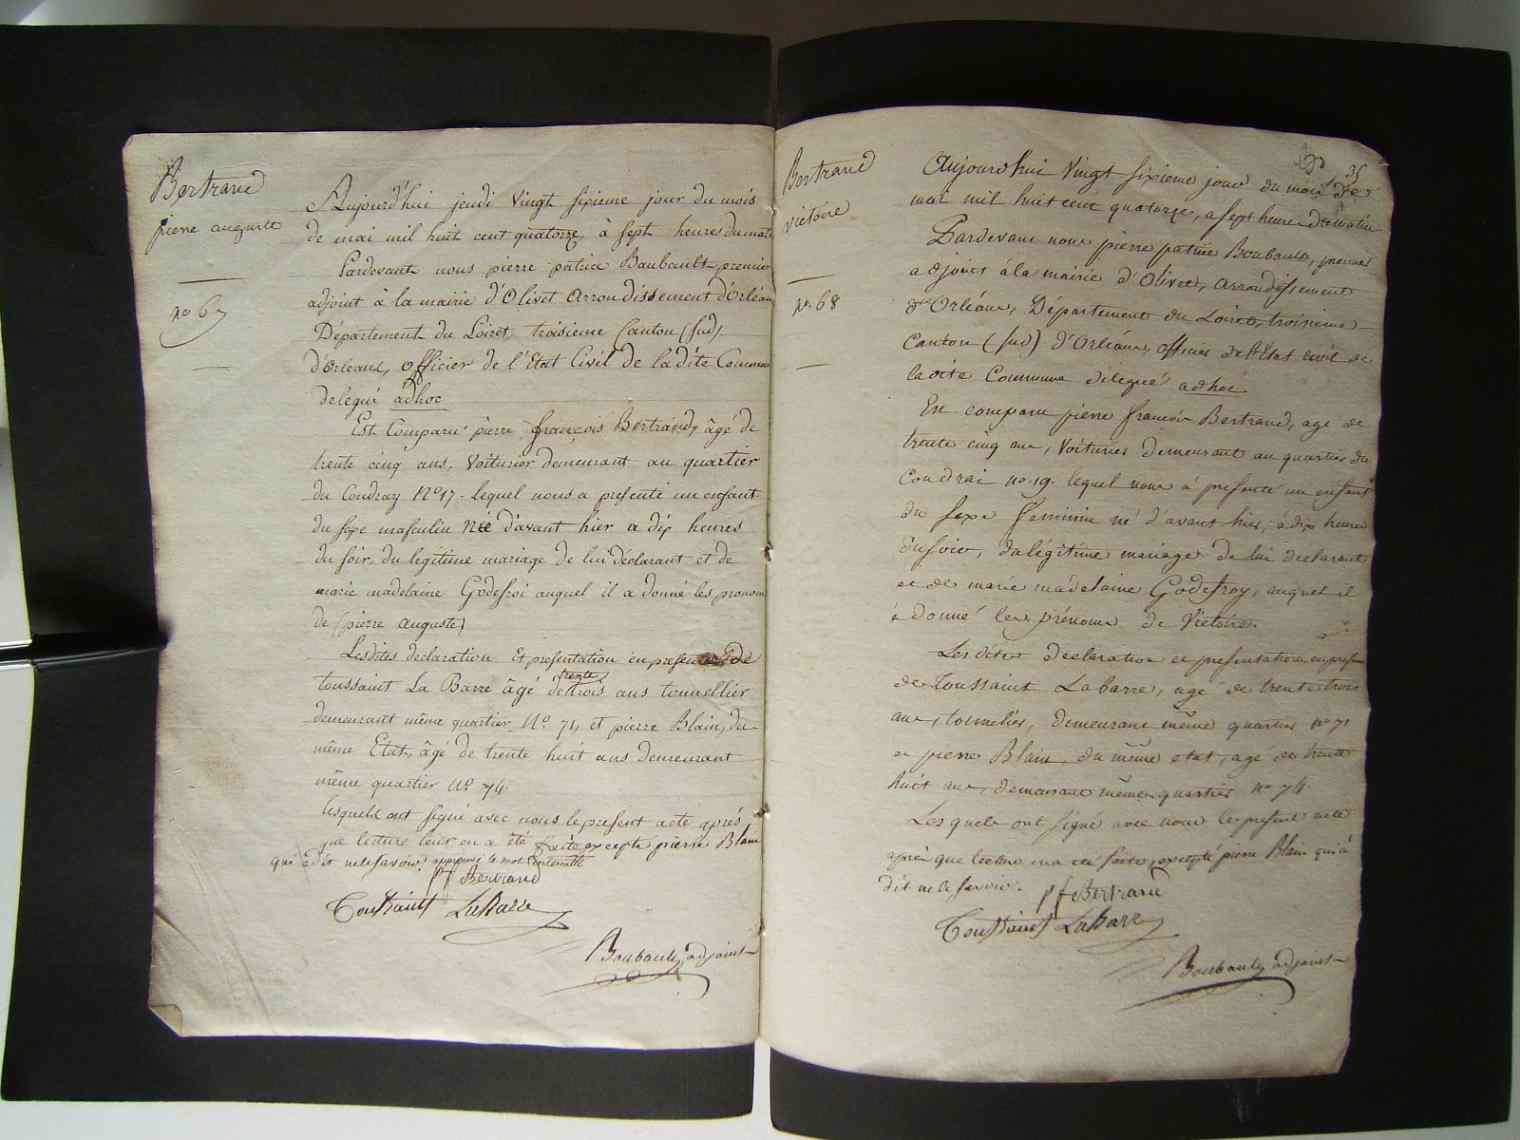 Bertrand
pierre auguste
no 67
Aujourd'hui jeudi Vingt sixieme jour du mois
de mai mil huit cent quatorze à sept heures du matin
Pardevant nous pierre patrice Boubault, premier
adjoint à la mairie d'Olivet arrondissement d'Orléans
Département du Loiret, troisieme Canton (sud)
d'orleans, officier de l'Etat Civil de la dite Commune
delégué adhoc
Est Comparu pierre françois Bertrand, âgé de
trente cinq ans, voiturier demeurant au quartier
du Coudray No 17. lequel nous a presenté un enfant
du sexe masculin né d'avant hier a dix heures
du soir, du legitime mariage de lui déclarant et de
marie madelaine Godefroi auquel il a donné les prenoms
de (pierre auguste)
Lesdites declaration Et presentation en presence de
toussaint La Barre âgé de trente trois ans tonnellier
demeurant même quartier No. 71, et pierre Blain, du
même Etat, âgé de trente huit ans demeurant
même quartier No 74.
lesquels ont signé avec nous le present acte après
que lecture leur en a été faite excepté pierre Blain
qui a dit ne le savoir. approuvé le mot
pf Bertrand
Toussaint LaBarre
Boubault, adjoint
Bertrand
victoire
no. 68
35
Aujourd'hui Vingt sixieme jour du mois de
mai mil huit cent quatorze, a sept heures du matin
Pardevant nous pierre patrice Boubault, premier
adjoint à la mairie d'Olivet, arrondissement
d'Orléans, Département du Loiret, troisieme
Canton (sud) d'Orléans, officier de l'Etat civil de
la dite Commune delegué adhoc
Est comparu pierre francois Bertrand, age de
trente cinq ans, Voiturier demeurant au quartier du
Coudrai no. 19. lequel nous a presenté un enfant
du sexe feminin né d'avant hier, à dix heures
du soir, du légitime mariage de lui declarant
et de marie madelaine Godefroy, auquel il
a donné les prénoms de Victoire.
Les dites declaration et presentation en presence
de Toussaint Labarre, agé de trente trois
ans, tonnelier, demeurant même quartier no 71
et pierre Blain du même etat, age de trente
huit ans, demeurant même quartier no 74.
Lesquels ont signé avec nous le present acte
après que lecture en a été faite, excepté pierre Blain qui a
dit ne le savoir.
pf Bertrand
Toussaint LaBarre
Boubault, adjoint